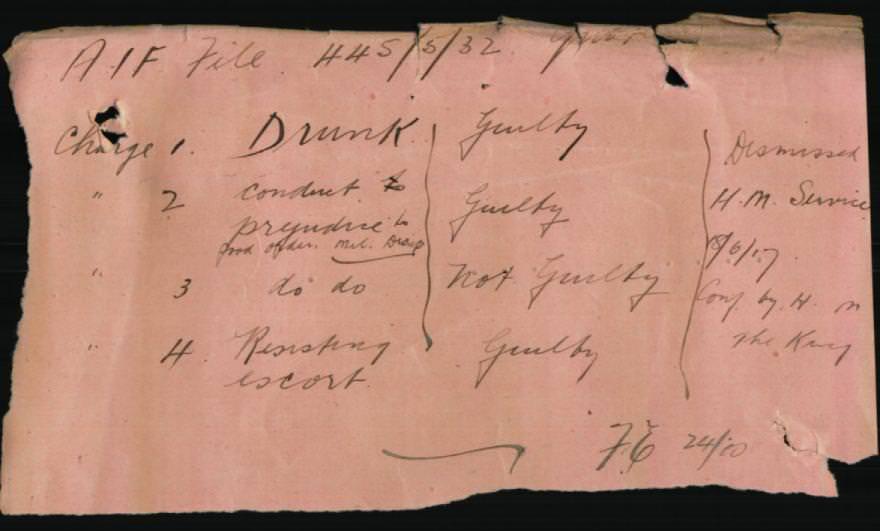 AIF File 445/5/32
Charge 1. Drunk Guilty Dismissed
" 2 conduct to Guilty H. M. Service
prejudice to
good order. Mil. Discip /6/17
" 3 do do Not Guilty Conf. by H. M
" 4. Resisting Guilty the King
escort
24/10